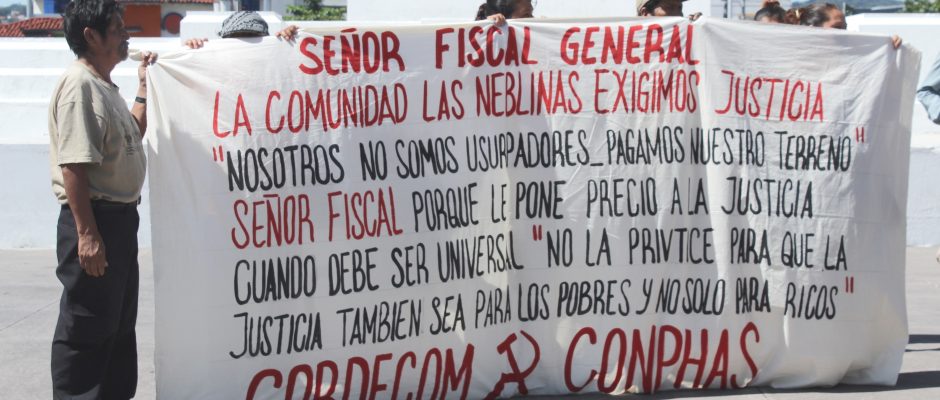 SEÑOR FISCAL GENERAL
LA COMUNIDAD LAS NEBLINAS EXIGIMOS JUSTICIA
"NOSOTROS NO SOMOS USURPADORES_PAGAMOS NUESTRO TERRENO"
SEÑOR FISCAL PORQUE LE PONE PRECIO A LA JUSTICIA
CUANDO DEBE SER UNIVERSAL "NO LA PRIVTICE PARA QUE LA
JUSTICIA TAMBIEN SEA PARA LOS POBRES Y NO SOLO PARA RICOS"
CORDECOM CONPHAS